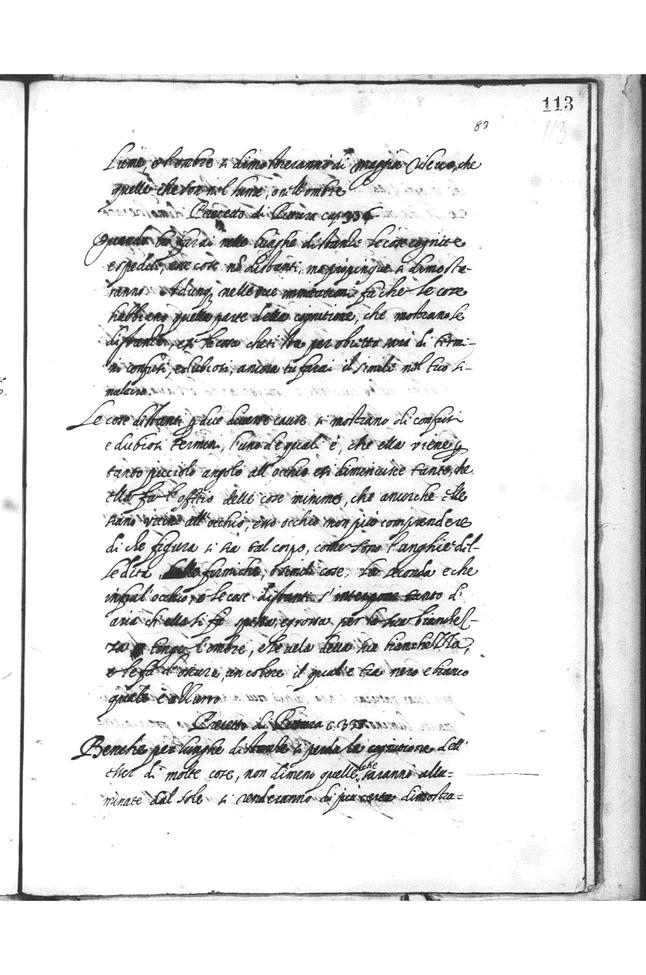 113
83
113
lume, o l'ombre si dimostreranno di maggior rilievo, che
quelle che son nel lume, o nell'ombre
Precetto di Pittura cap. 336
Quando tu farai nelle lunghe distantie le cose cognite e
espedite, esse cose nõ distanti, ma propinque si dimostre
ranno. Adunq nelle tue immitationi fa che le cose
habbiano quella parte della cognitione, che mostrano le
distantie, e se la cosa che ti sta per obietto sarà di termi-
ni confusi, e dubiosi, ancora tu farai il simile nel tuo si-
mulacro.
Le cose distanti p due diverse cause si mostrano di confusi
e dubiosi termini, l'una de quali è, che ella viene p
tanto piccolo angolo all'occhio e si diminuisce tanto, che
ella fa l'offitio delle cose minime, che ancorche elle
siano vicine all'occhio, esso occhio non può comprendere
di che figura si sia tal corpo, come sono l'unghie del-
le dita, delle formiche, o simili cose, la seconda è che
infra l'occhio, e le cose distanti s'interpone tanto di
aria ch'ella si fa spessa, e grossa, per la sua bianchez-
za tinge l'ombre, e le vela della sua bianchezza,
e le fa d'oscure, un colore il qual è tra nero e bianco
quale è azurro
Precetto di Pittura c. 337
Benche per lunghe distantie si perda la cognitione dell'
esser di molte cose, non dimeno quelle che saranno allu-
minate dal sole si renderanno di più certa dimostra-